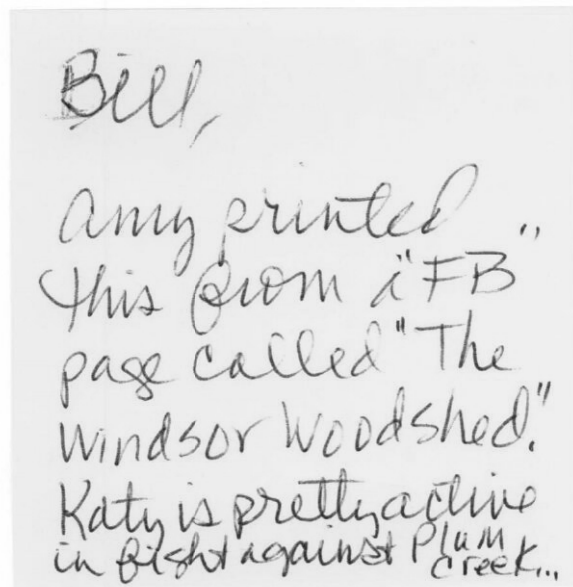 Bill,
Amy printed
this from a "FB"
page called "The
Windsor Woodshed."
Katy is pretty active
in fight against Plum
Creek...